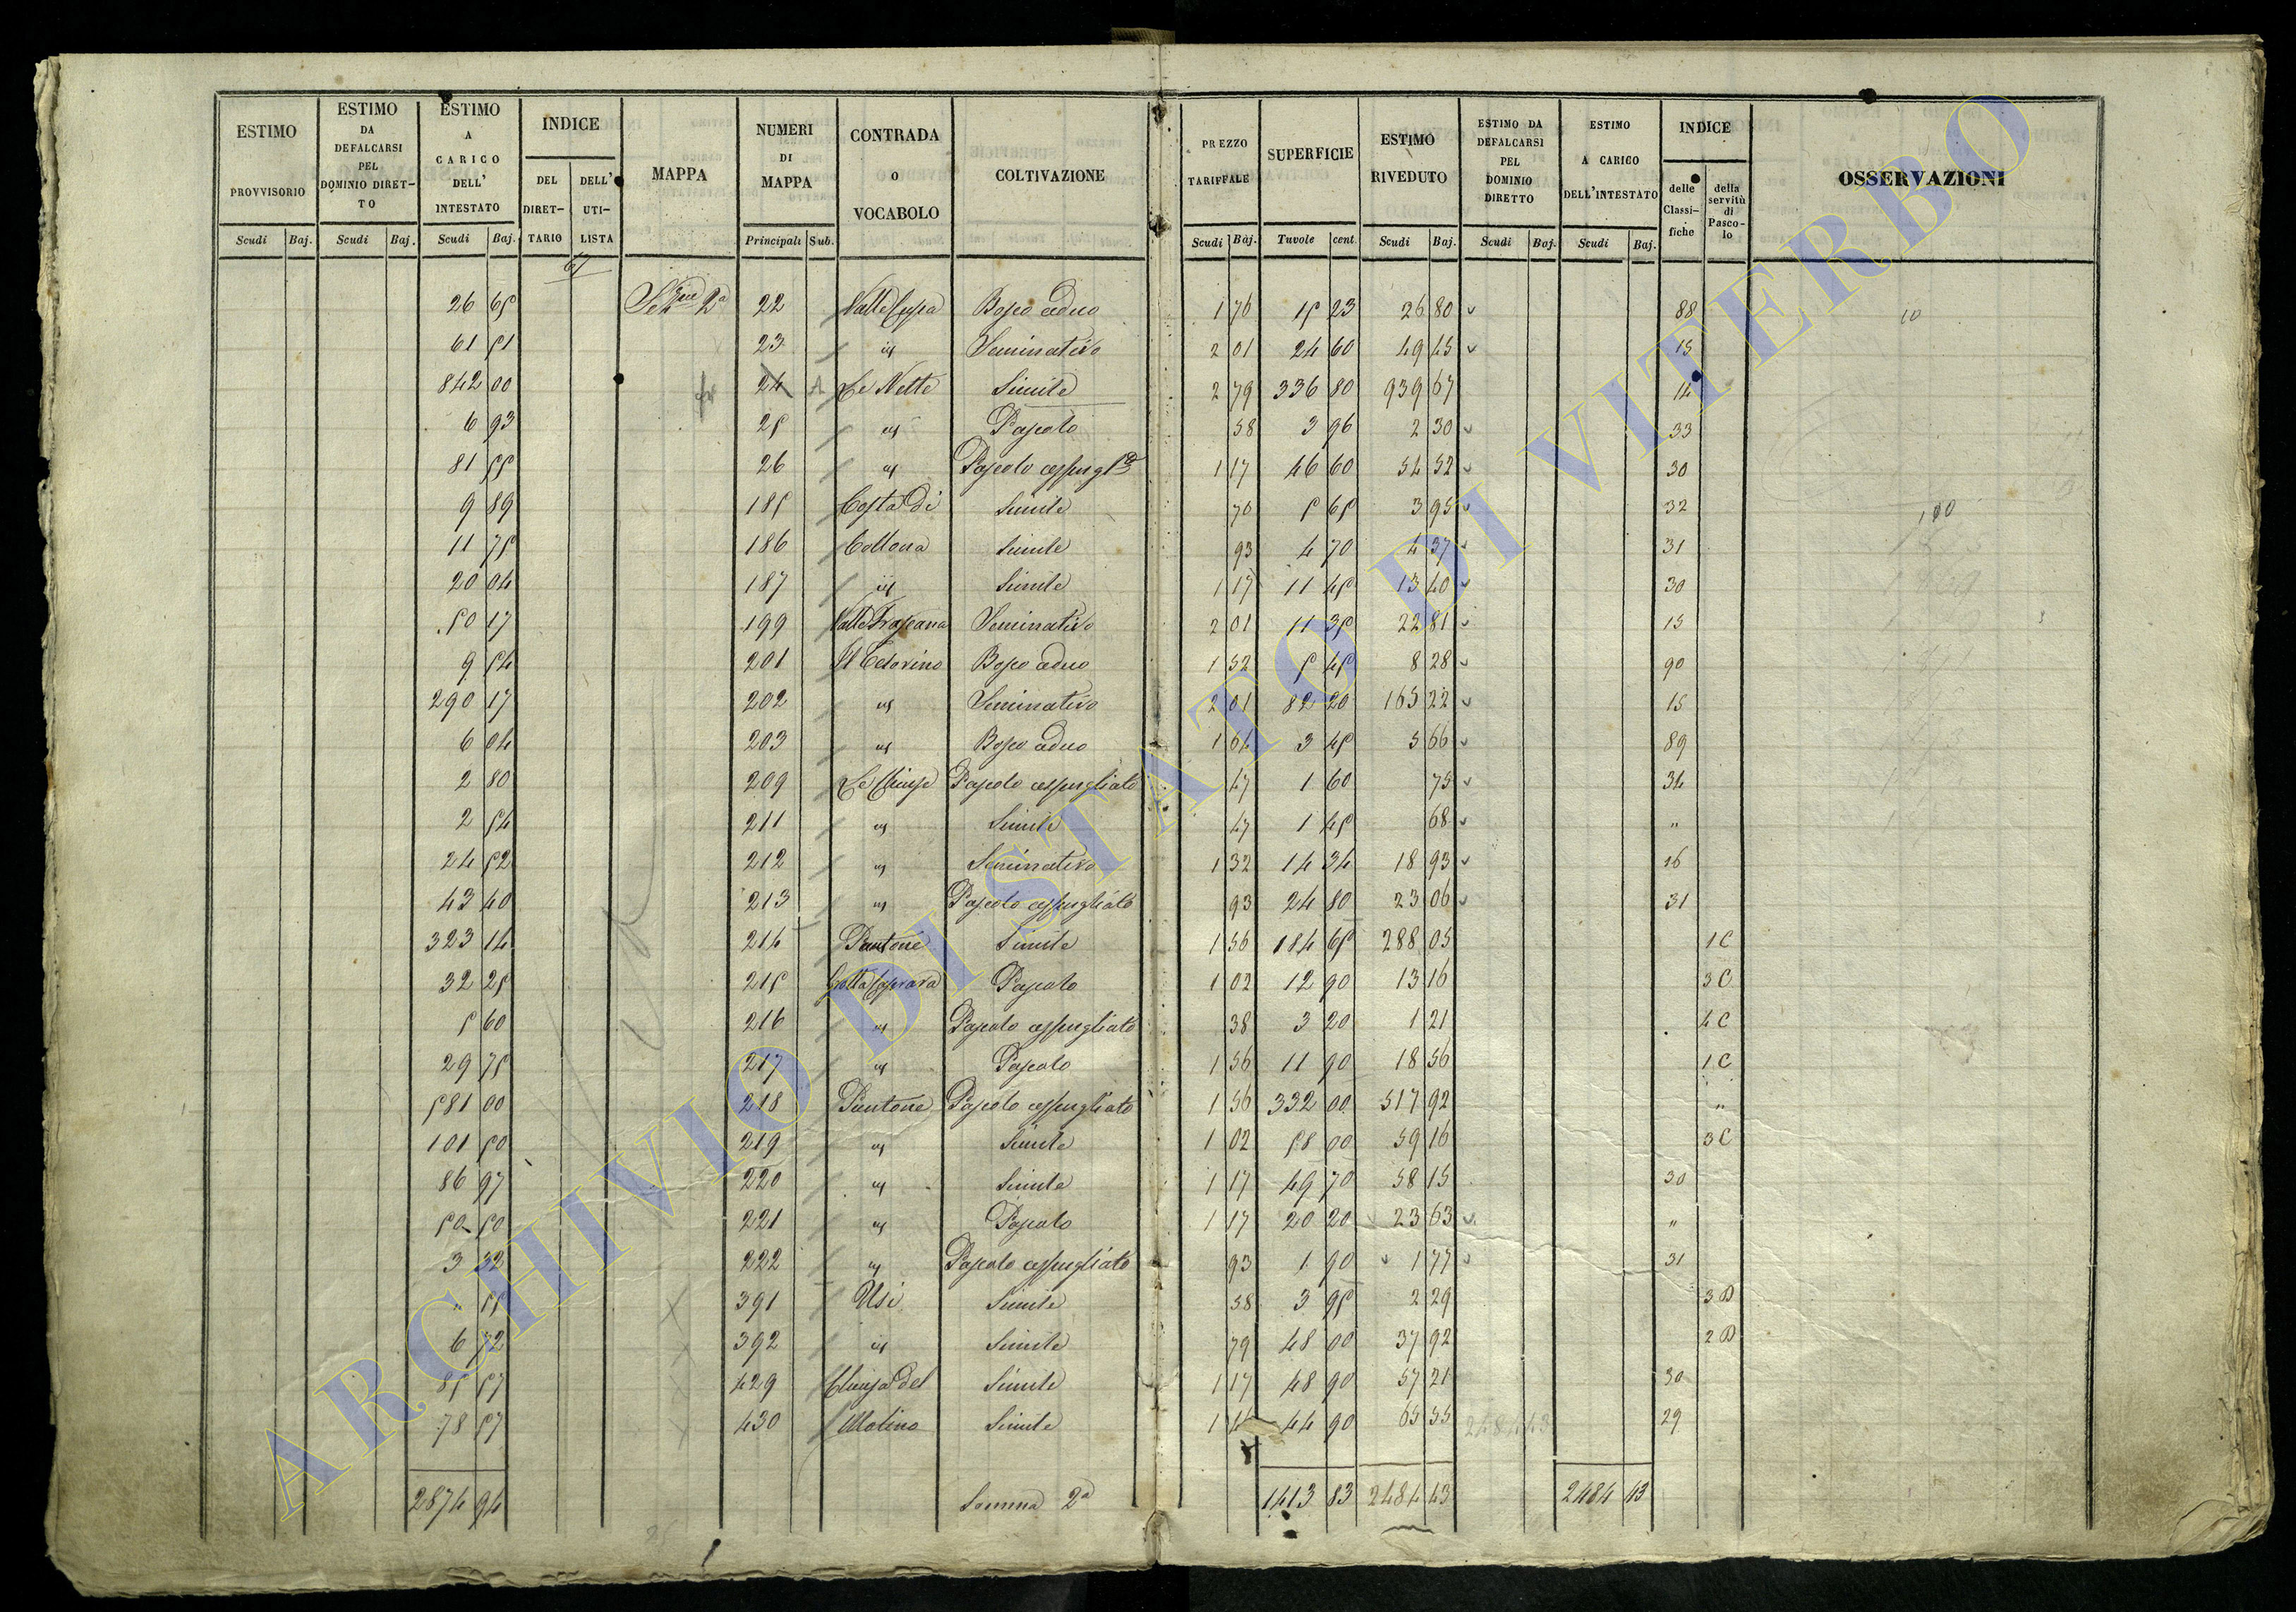 ESTIMO PROVVISORIO Scudi Baj.
ESTIMO DA DEFALCARSI PEL DOMINIO DIRET-TO Scudi Baj.
ESTIMO A CARICO DELL' INTESTATO Scudi Baj.
INDICE DEL DIRET-TARIO DELL' UTI-LISTA
MAPPA
NUMERI DI MAPPA Principali Sub.
CONTRADA o VOCABOLO
COLTIVAZIONE
PREZZO TARIFFALE Scudi Baj.
SUPERFICIE Tavole cent.
ESTIMO RIVEDUTO Scudi Baj.
ESTIMO DA DEFALCARSI PEL DOMINIO DIRETTO Scudi Baj.
ESTIMO A CARICO DELL'INTESTATO Scudi Baj.
INDICE delle Classi-fiche della servitù di Pasco-lo
OSSERVAZIONI
26 65 22 Valle Cupa Bosco ceduo 1 76 15 23 26 80 88 10
61 51 23 id Seminativo 2 01 24 60 49 45 15
842 00 24 A Le Nette Simile 2 79 336 80 939 67 14
6 93 25 id Pascolo 58 3 96 2 30 33
81 55 26 id Pascolo cespugl.to 1 17 46 60 54 52 30
9 89 185 Costa Di Simile 70 5 65 3 95 32
11 75 186 Simile 93 4 70 4 37 31
20 04 187 id Simile 1 17 11 45 13 40 30
50 17 199 Seminativo 2 01 11 35 22 81 15
9 54 201 Bosco ceduo 1 52 5 45 8 28 90
290 17 202 id Seminativo 2 01 82 20 165 22 15
6 04 203 id Bosco ceduo 1 64 3 45 5 66 89
2 80 209 Le Chiuse Pascolo cespugliato 47 1 60 75 34
2 54 211 id Simile 47 1 45 68 "
24 52 212 id Seminativo 1 32 14 34 18 93 16
43 40 213 id Pascolo cespugliato 93 24 80 23 06 31
323 14 214 Pantone Simile 1 56 184 65 288 05 1 C
32 25 215 Grotta Caprara Pascolo 1 02 12 90 13 16 3 C
5 60 216 id Pascolo cespugliato 38 3 20 1 21 4 C
29 75 217 id Pascolo 1 56 11 90 18 56 1 C
581 00 218 Pantone Pascolo cespugliato 1 56 332 00 517 92 "
101 50 219 id Simile 1 02 58 00 59 16 3 C
86 97 220 id Simile 1 17 49 70 58 15 30
50 50 221 id Pascolo 1 17 20 20 23 63 "
3 32 222 id Pascolo cespugliato 93 1 90 1 77 31
" 55 391 Usi Simile 58 3 95 2 29 3 D
6 72 392 id Simile 79 48 00 37 92 2 D
85 57 429 Chiusa Del Simile 1 17 48 90 57 21 30
78 57 430 Molino Simile 44 90 65 55 2484 43 29
2874 94 Somma 2a 1413 83 2484 43 2484 43
ARCHIVIO DI STATO DI VITERBO